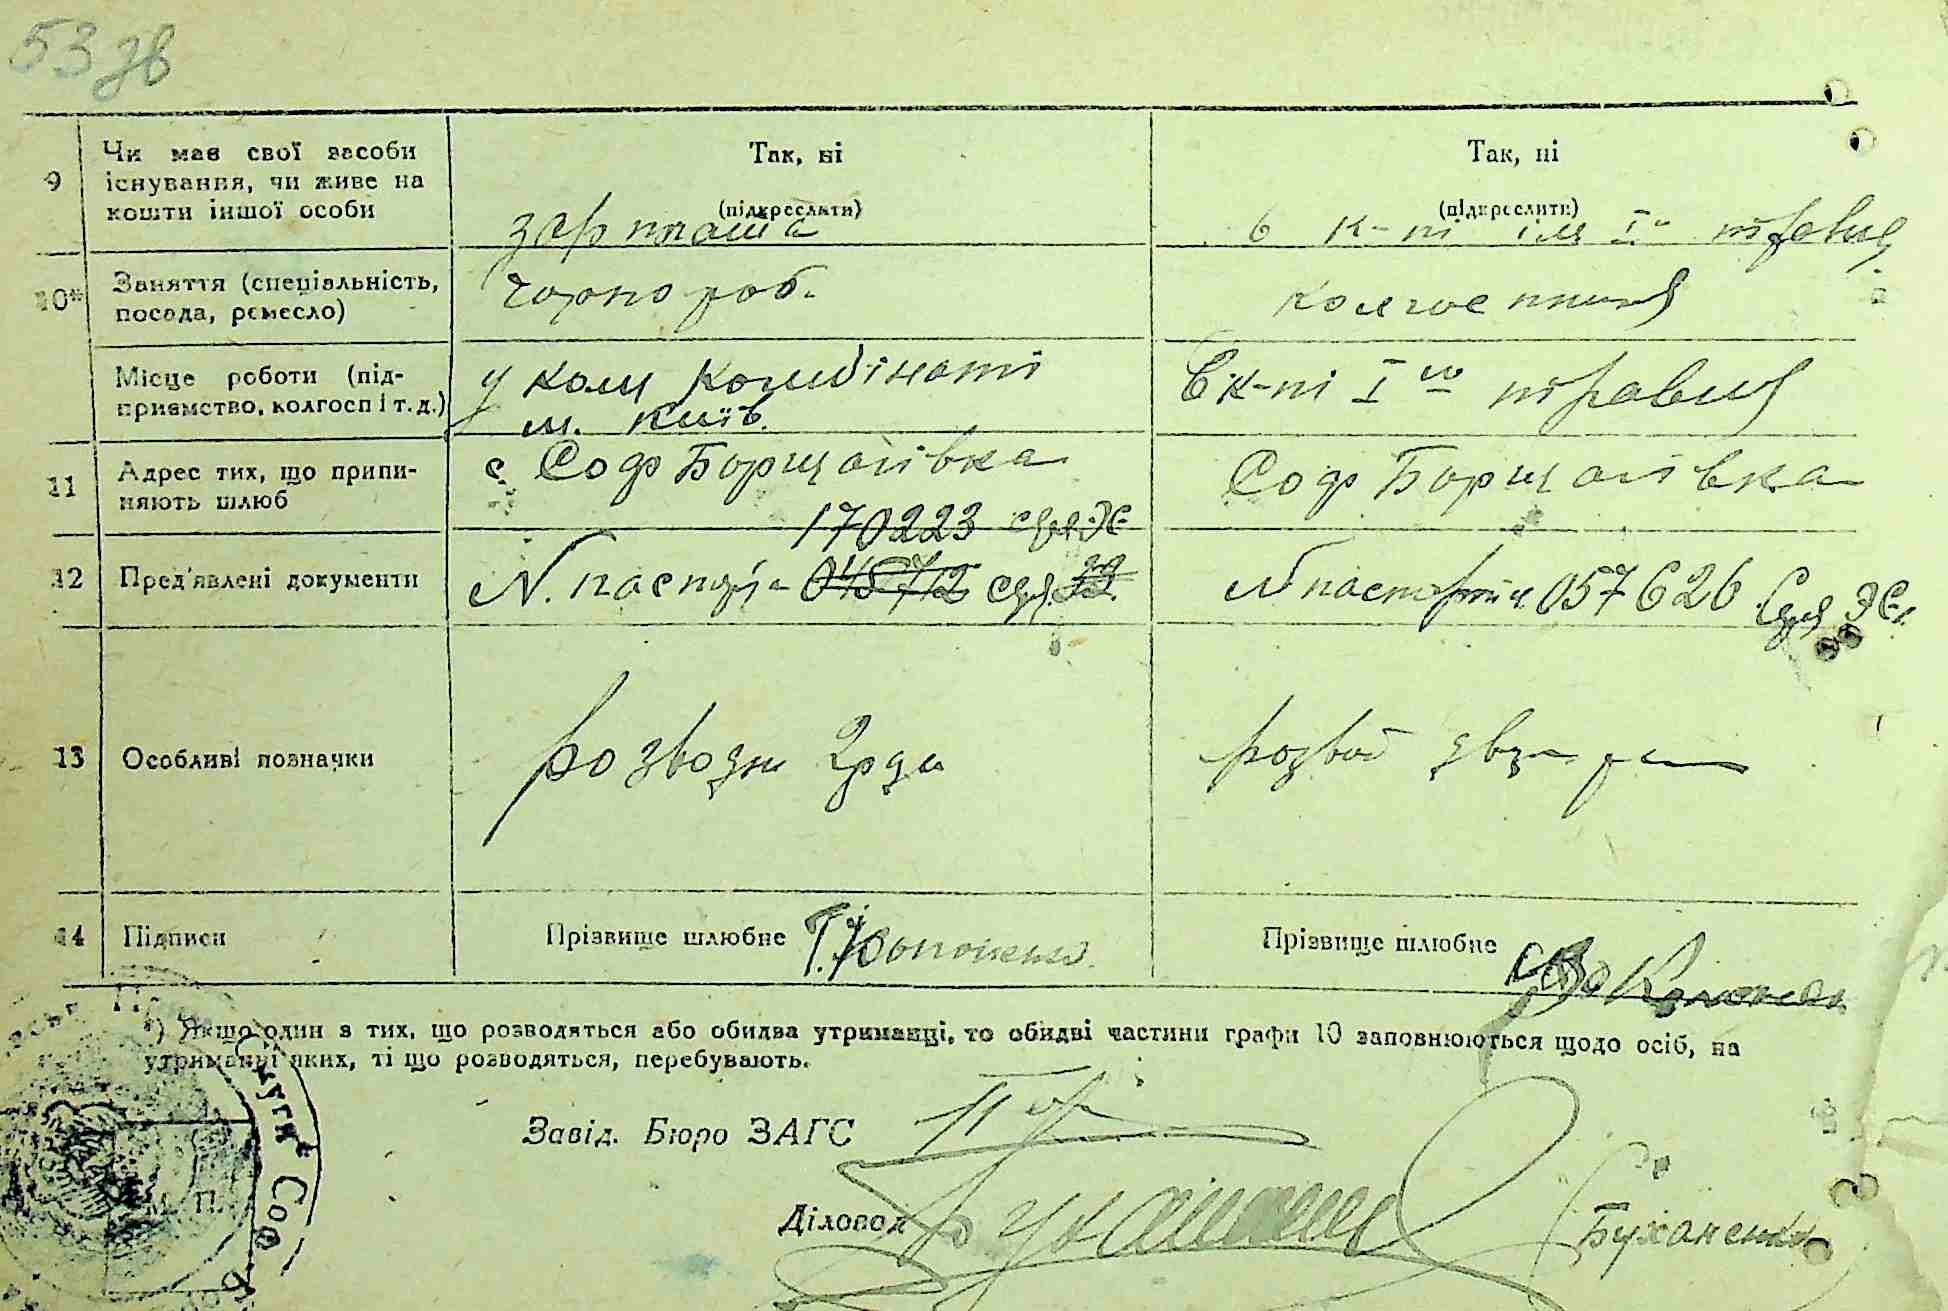 53 зв
9 Чи має свої засоби існування, чи живе на кошти іншої особи
Так, ні
(підкреслити)
зарплата
Так, ні
(підкреслити)
в к-пі ім І го травня
10* Заняття (спеціальність, посада, ремесло)
чорнороб.
колгоспниця
Місце роботи (підприємство, колгосп і т. д.)
у комбінаті
м. Київ.
В к-пі І го травня
11 Адрес тих, що припиняють шлюб
с Соф Борщагівка
Соф Борщагівка
12 Пред'явлені документи
170223 ЭЕ
N. паспорта 048712
N паспорта 057626 ЭЕ
13 Особливі позначки
розводи 2 рази
розвод два рази
14 Підписи
Прізвище шлюбне
Прізвище шлюбне
*) Якщо один з тих, що розводяться або обидва утриманці, то обидві частини графи 10 заповнюються щодо осіб, на
утриманні яких, ті що розводяться, перебувають.
Завід. Бюро ЗАГС
М. П.
Діловод
(Буханенко